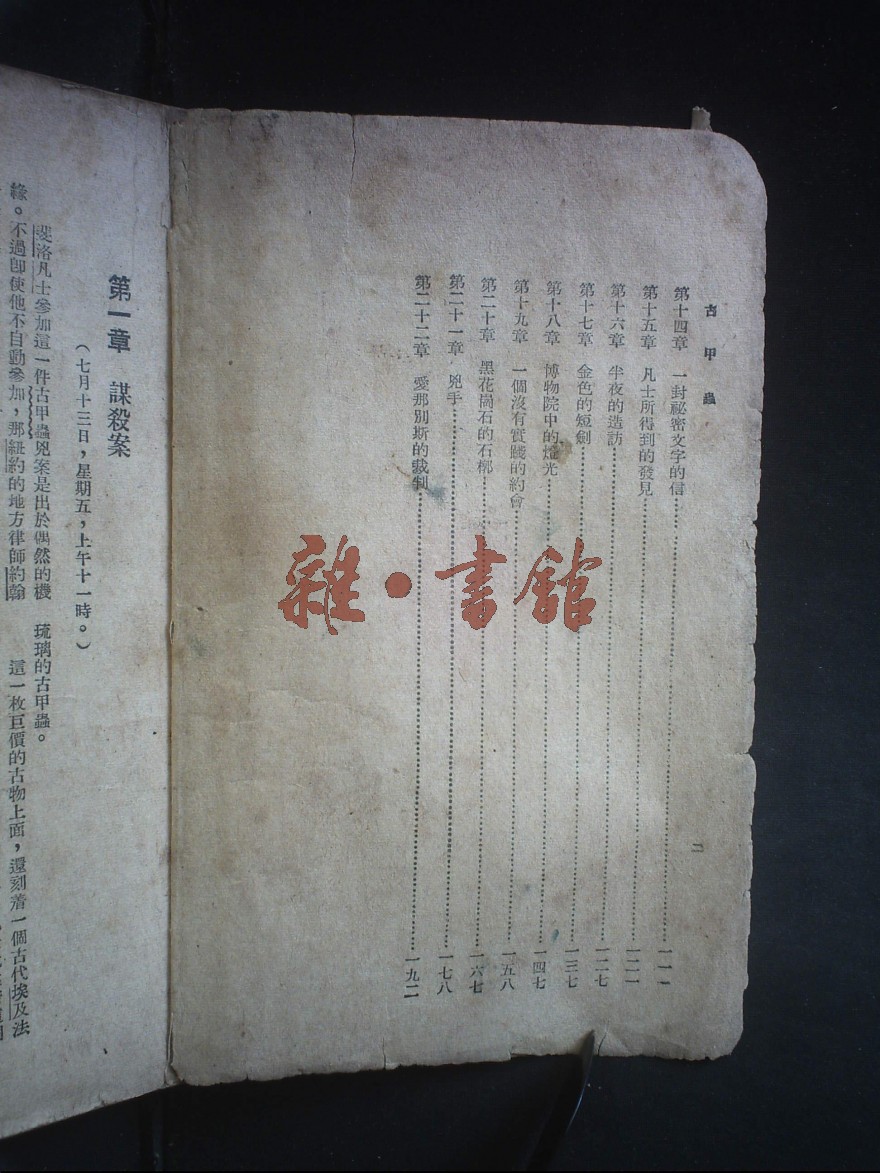 古甲蟲
第十四章 一封祕密文字的信 一一一
第十五章 凡士所得到的發見 一二一
第十六章 半夜的造訪 一二七
第十七章 金色的短劍 一三七
第十八章 博物院中的燈光 一四七
第十九章 一個沒有實踐的約會 一五八
第二十章 黑花崗石的石槨 一六七
第二十一章 兇手 一七八
第二十二章 愛那別斯的裁判 一九二
二
雜・書館
第一章 謀殺案
（七月十三日，星期五，上午十一時。）
斐洛凡士參加這一件古甲蟲兇案是出於偶然的機
緣。不過卽使他不自動參加，那紐約的地方律師約翰
琉璃的古甲蟲。
這一枚巨價的古物上面，還刻着一個古代埃及法